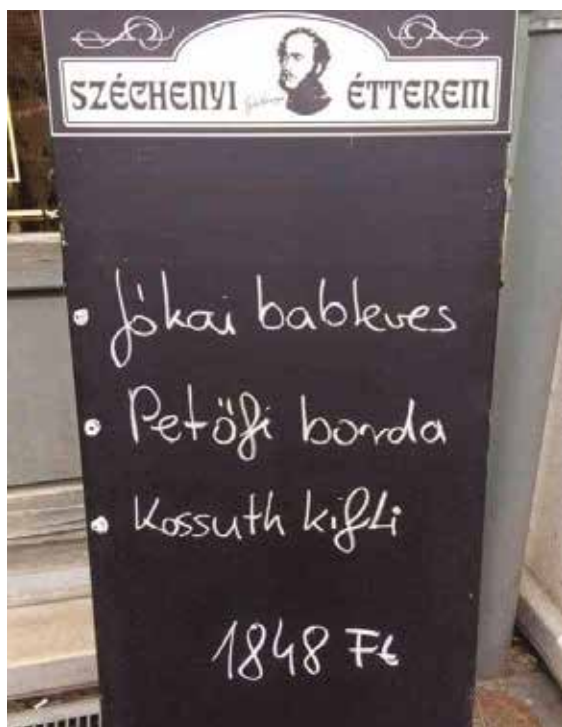 SZÉCHENYI ÉTTEREM
• Jókai bableves
• Petőfi borda
• Kossuth kifli
1848 Ft